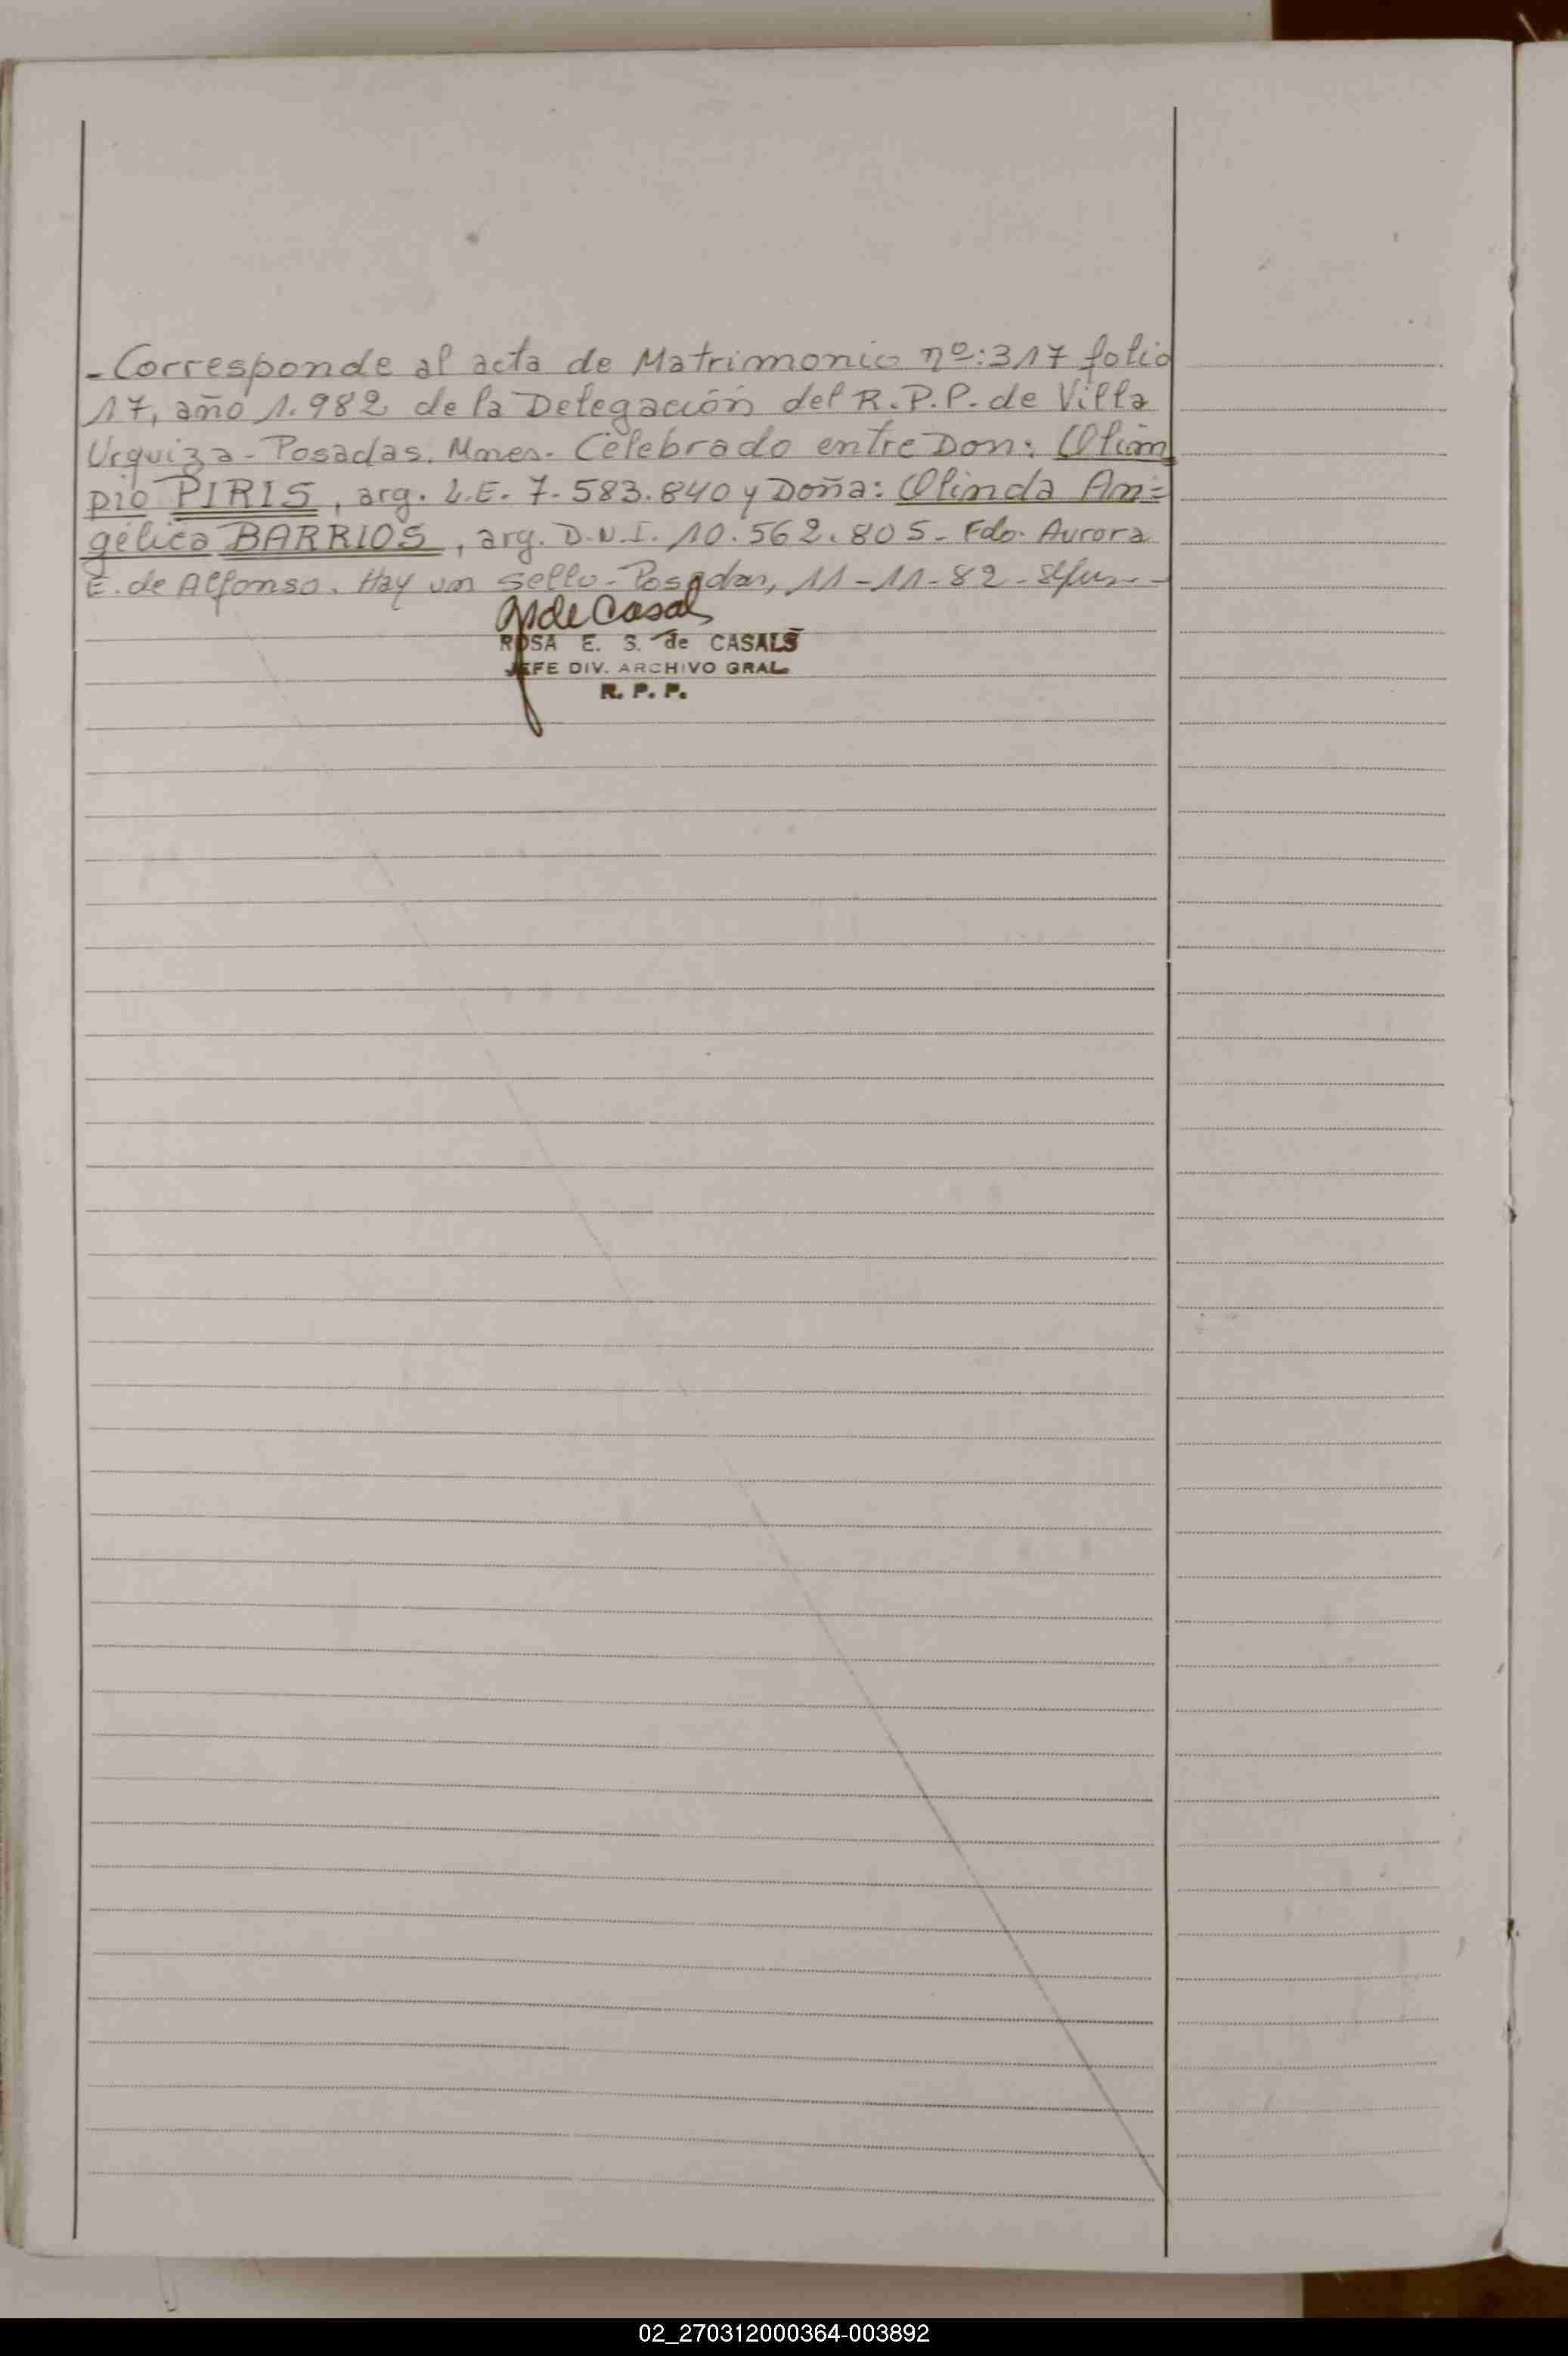 - Corresponde al acta de Matrimonio nº: 317 folio
17, año 1.982 de la Delegación del R.P.P. de Villa
Urquiza - Posadas. Mnes. Celebrado entre Don: Olim
pio PIRIS, arg. L.E. 7.583.840 y Doña: Olinda An=
gélica BARRIOS, arg. D.N.I. 10.562.805 - Fdo. Aurora
E. de Alfonso. Hay un sello - Posadas, 11-11-82 -
de Casals
ROSA E. S. de CASALS
JEFE DIV. ARCHIVO GRAL.
R. P. P.
02_270312000364-003892